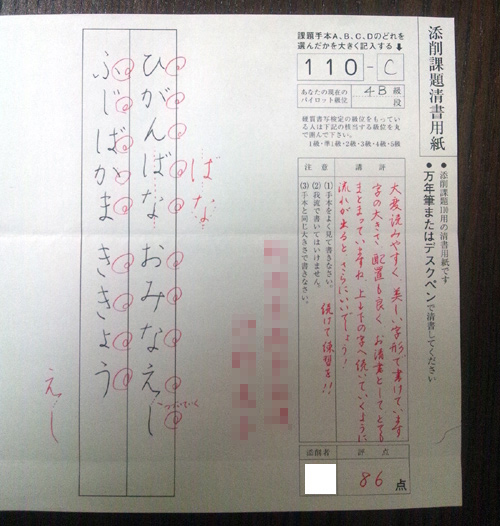 添削課題清書用紙
●添削課題110用の清書用紙です
●万年筆またはデスクペンで清書してください
課題手本A、B、C、Dのどれを
選んだかを大きく記入する⬇
110-C
あなたの現在の
パイロット級位
4B 級
段
硬質書写検定の級位をもってい
る人は下記の枝当する級位を丸
で囲んで下さい。
1級・準1級・2級・3級・4級・5級
講評
大変読みやすく、美しい字形で書けています
字の大きさ、配置も良く、お清書としてとても
まとまっていますね。上と下の字へ続いていくように
流れが出ると、さらにいいでしょう!
続けて練習を!!
注意
(1)手本をよく見て書きなさい。
(2)我流で書いてはいけません。
(3)手本と同じ大きさで書きなさい。
評点
86点
添削者
ばな
ひがんばな おみなえし
つづいていく
ふじばかま ききょう
えし